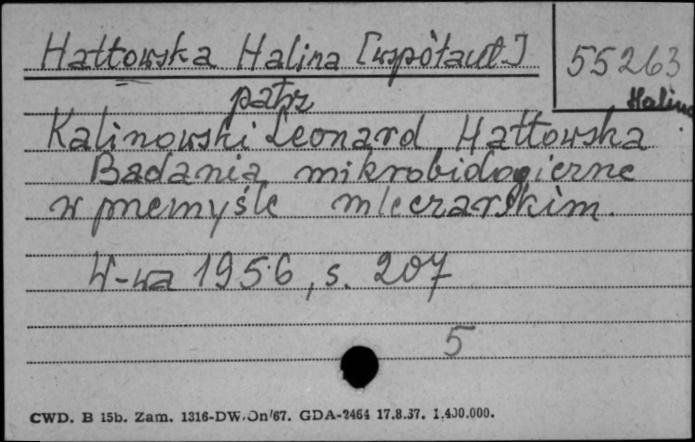 Hattowska Halina [współaut.]
55263
patrz
Halina
Kalinowski Leonard, Hattowska
Badania mikrobiologiczne
w przemyśle mleczarskim.
W-wa 1956, s. 207
5
CWD. B 15b. Zam. 1316-DW/On/67. GDA-2464 17.8.67. 1.400.000.